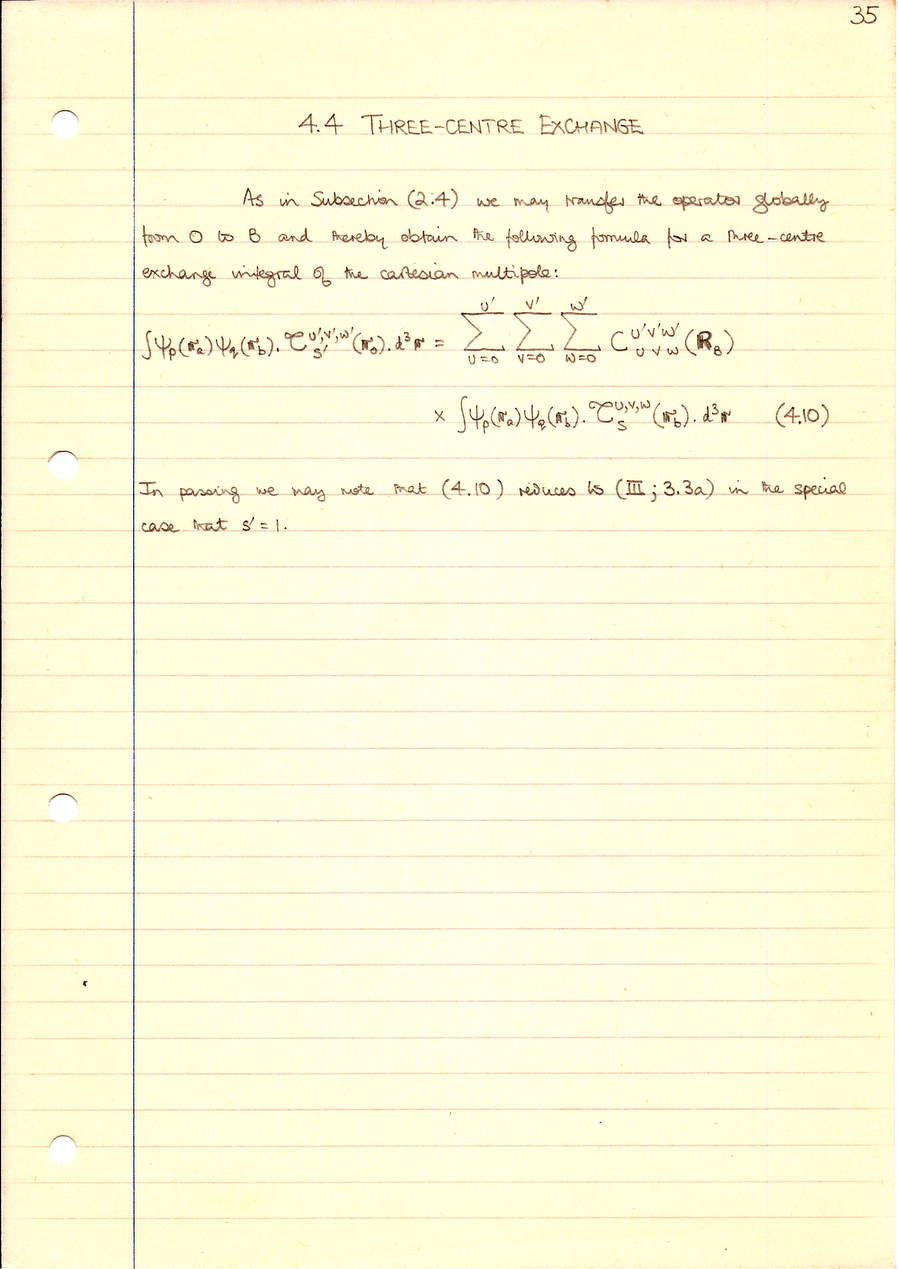 35
4.4 THREE-CENTRE EXCHANGE
As in Subsection (2.4) we may transfer the operator globally
from O to B and thereby obtain the following formula for a three-centre
exchange integral of the cartesian multipole:
∫ψ_p(𝐫_a)ψ_q(𝐫_b).𝒯_{S'}^{U',V',W'}(𝐫_o).d³𝐫 = Σ_{U=0}^{U'} Σ_{V=0}^{V'} Σ_{W=0}^{W'} C_{U V W}^{U'V'W'}(𝐑_B)
× ∫ψ_p(𝐫_a)ψ_q(𝐫_b).𝒯_S^{U,V,W}(𝐫_b).d³𝐫 (4.10)
In passing we may note that (4.10) reduces to (III; 3.3a) in the special
case that s' = 1.